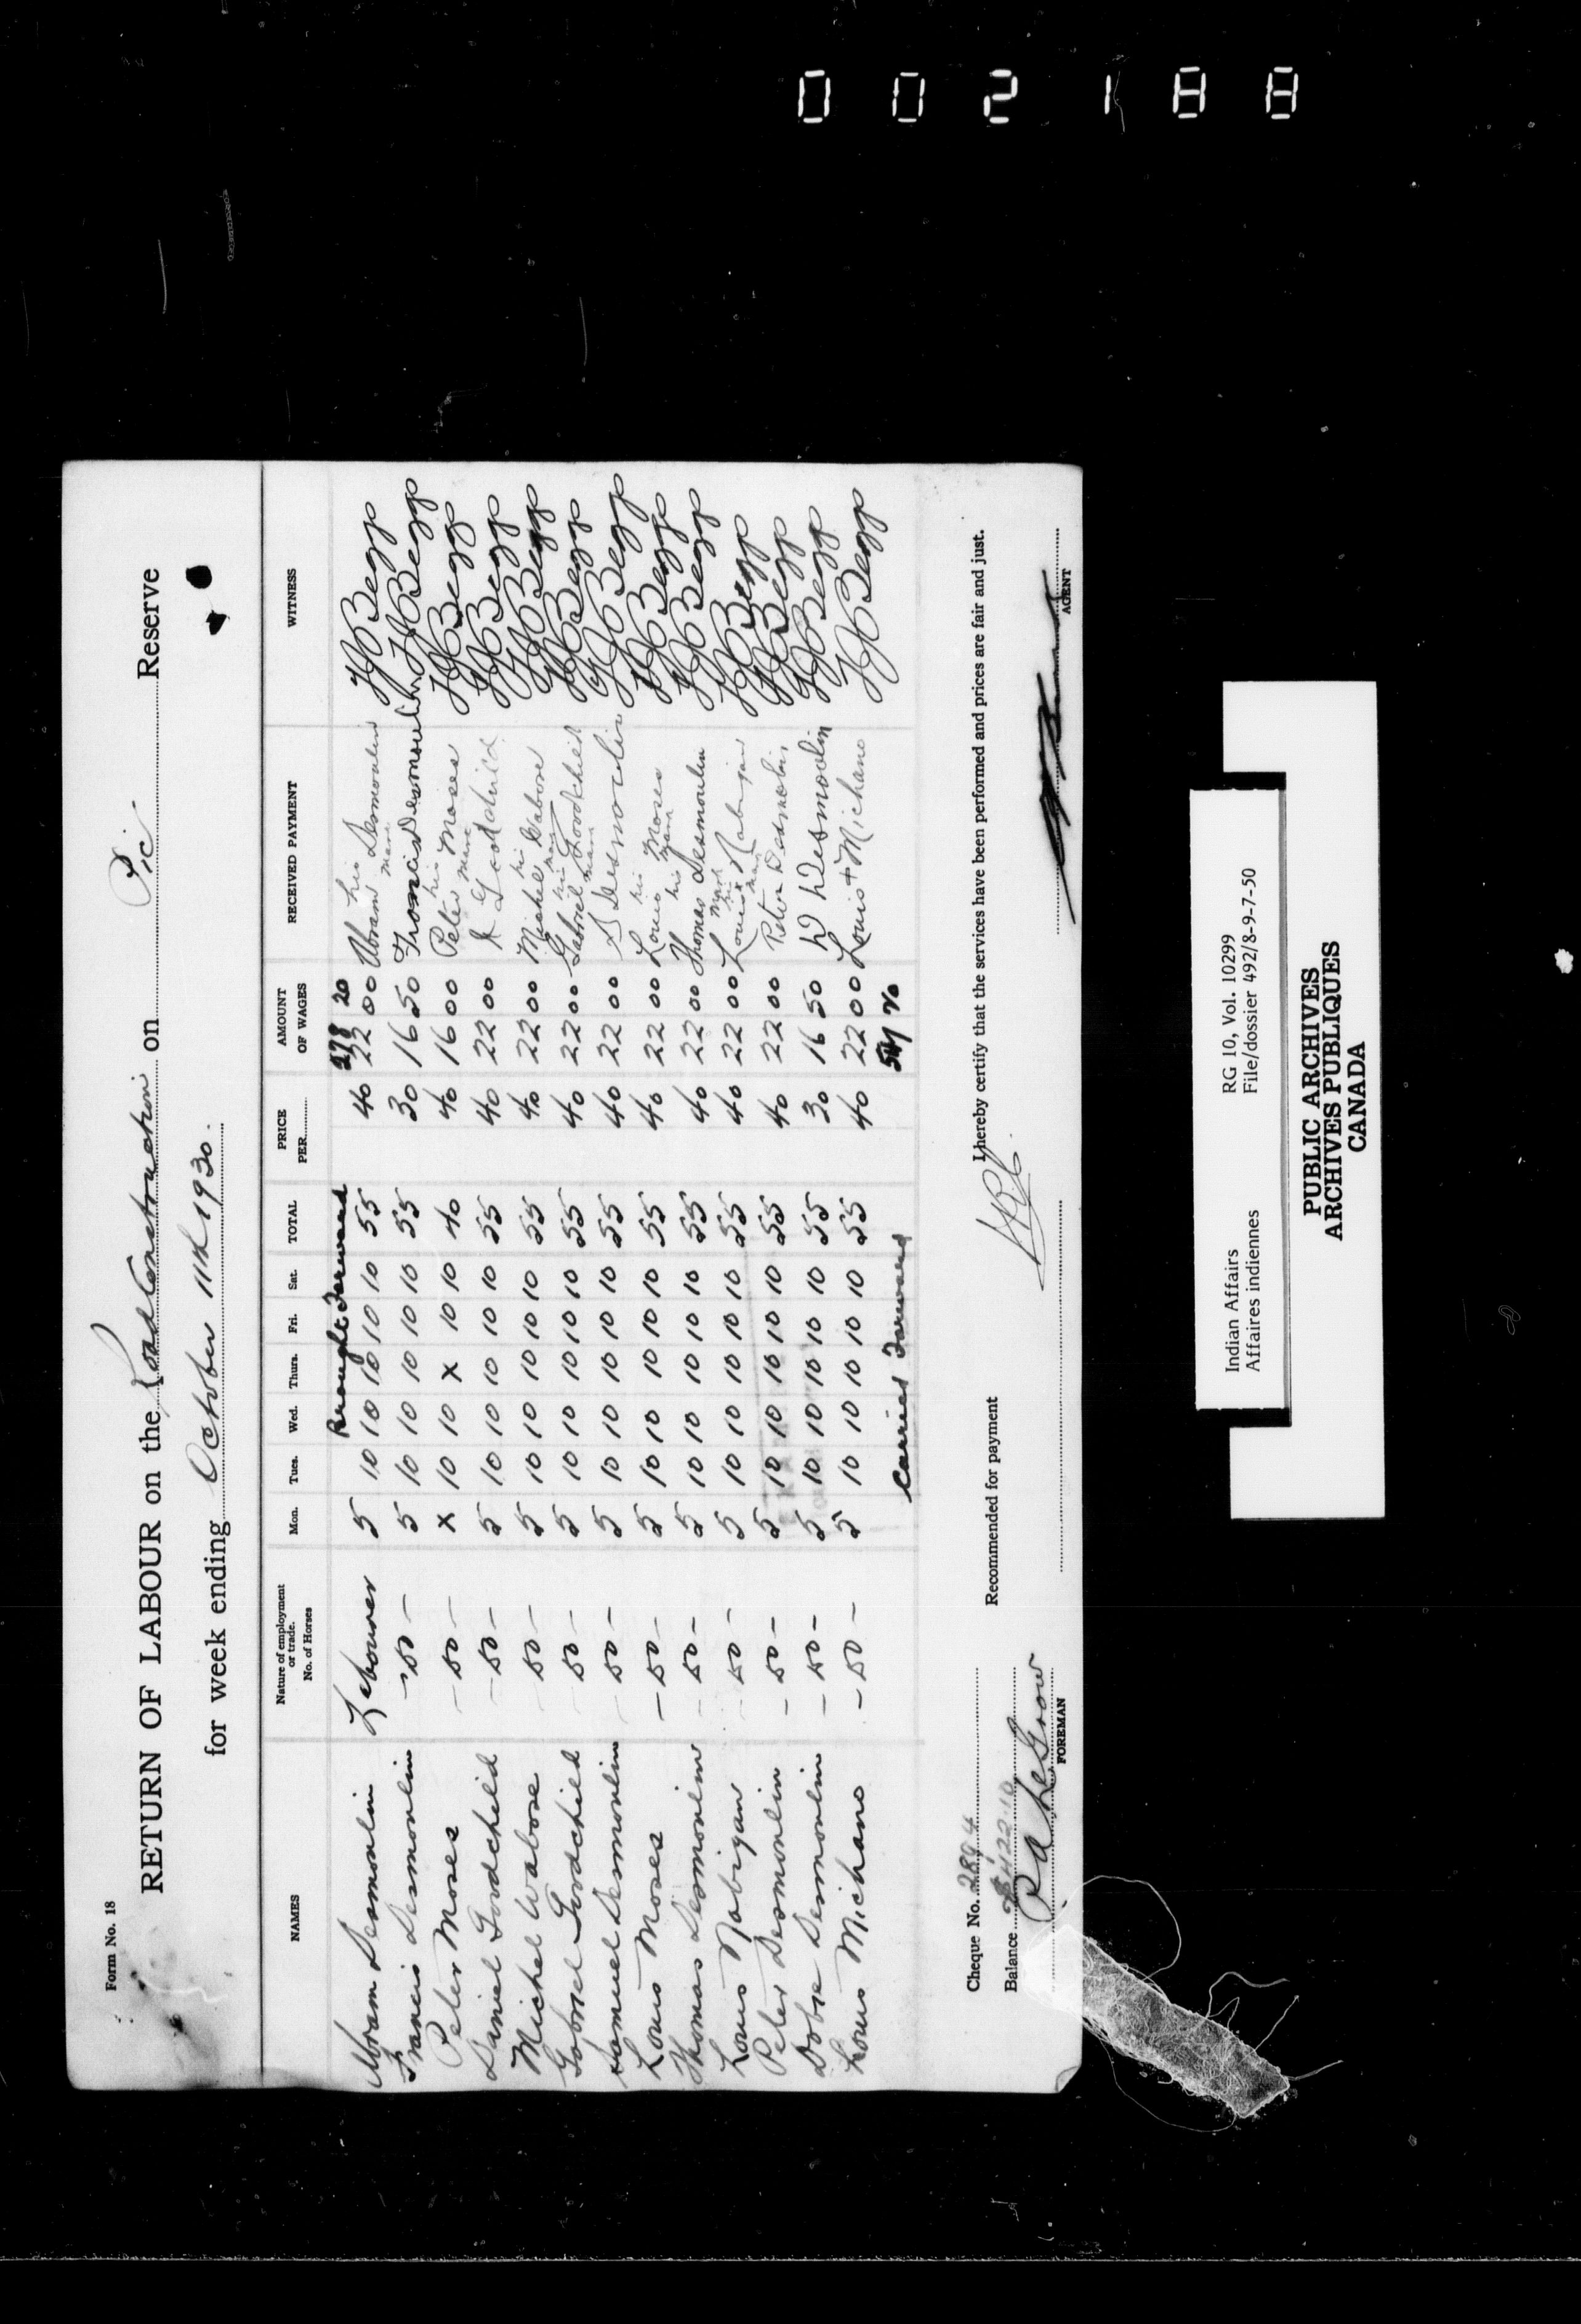 002188
Form No. 18
RETURN OF LABOUR on the Road Construction on Pic Reserve
for week ending October 11th 1930.
NAMES Nature of employment or trade. No. of Horses Mon. Tues. Wed. Thurs. Fri. Sat. TOTAL PRICE PER AMOUNT OF WAGES RECEIVED PAYMENT WITNESS
Brought Forward 278 20
Abram Desmoulin Labourer 5 10 10 10 10 10 55 40 22 00 Abram his Desmoulin mark HJ Begg
Francis Desmoulin - do - 5 10 10 10 10 10 55 30 16 50 Francis Desmoulin HJ Begg
Peter Moses - do - x 10 10 x 10 10 40 40 16 00 Peter his Moses mark HJ Begg
Daniel Goodchild - do - 5 10 10 10 10 10 55 40 22 00 Goodchild HJ Begg
Michel Wabose - do - 5 10 10 10 10 10 55 40 22 00 Michel his Wabose mark HJ Begg
Gabriel Goodchild - do - 5 10 10 10 10 10 55 40 22 00 Gabriel his Goodchild mark HJ Begg
Samuel Desmoulin - do - 5 10 10 10 10 10 55 40 22 00 S Desmoulin HJ Begg
Louis Moses - do - 5 10 10 10 10 10 55 40 22 00 Louis his Moses mark HJ Begg
Thomas Desmoulin - do - 5 10 10 10 10 10 55 40 22 00 Thomas his Desmoulin mark HJ Begg
Louis Nabigan - do - 5 10 10 10 10 10 55 40 22 00 Louis his x Nabigan mark HJ Begg
Peter Desmoulin - do - 5 10 10 10 10 10 55 40 22 00 Peter Desmolin HJ Begg
Dobie Desmoulin - do - 5 10 10 10 10 10 55 30 16 50 D Desmoulin HJ Begg
Louis Michano - do - 5 10 10 10 10 10 55 40 22 00 Louis + Michano HJ Begg
Carried Forward 547 20
Cheque No. 2894
Balance
RA LeGrow
FOREMAN
Recommended for payment
I hereby certify that the services have been performed and prices are fair and just.
AGENT
Indian Affairs RG 10, Vol. 10299
Affaires indiennes File/dossier 492/8-9-7-50
PUBLIC ARCHIVES
ARCHIVES PUBLIQUES
CANADA